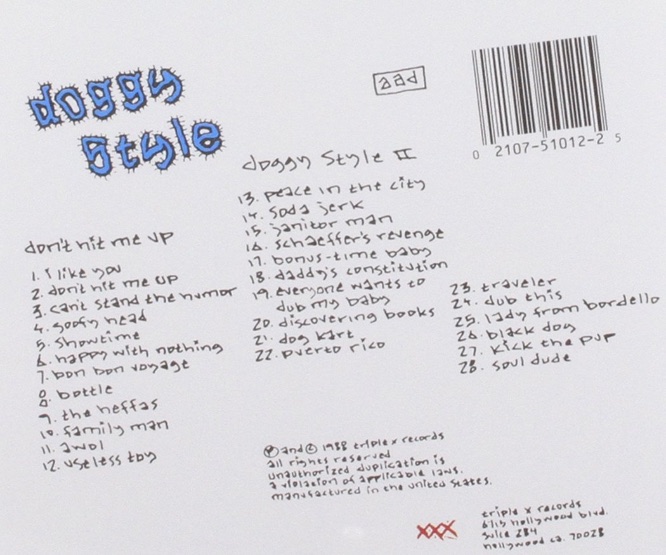 doggy
style
aad
0 2107-51012-2 5
don't hit me up
1. i like you
2. don't hit me up
3. can't stand the humor
4. goofy head
5. showtime
6. happy with nothing
7. bon bon voyage
8. bottle
9. the heffas
10. family man
11. awol
12. useless toy
doggy style II
13. peace in the city
14. soda jerk
15. janitor man
16. schaeffer's revenge
17. bonus-time baby
18. daddy's constitution
19. everyone wants to
dub my baby
20. discovering books
21. dog kart
22. puerto rico
23. traveler
24. dub this
25. lady from bordello
26. black dog
27. kick the pup
28. soul dude
℗ and © 1988 triple x records
all rights reserved
unauthorized duplication is
a violation of applicable laws.
manufactured in the united states.
XXX
triple x records
6715 hollywood blvd.
suite 284
hollywood ca. 90028